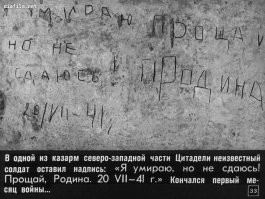 miafilm.net
УМИРАЮ ПРОЩАЙ
НО НЕ
СДАЮСЬ! РОДИНА
20/VII-41
В одной из казарм северо-западной части Цитадели неизвестный
солдат оставил надпись: «Я умираю, но не сдаюсь!
Прощай, Родина. 20 VII—41 г.» Кончался первый ме-
сяц войны...
33